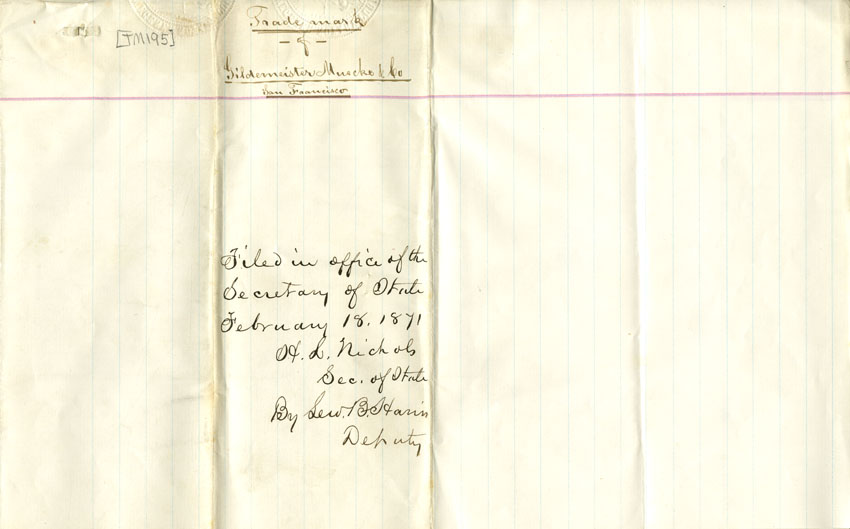 [TM195]
Trade mark
- of -
Gildemeister Muecke & Co
San Francisco
Filed in office of the
Secretary of State
February 18. 1871
H. L. Nichols
Sec. of State
By Lew. B. Harris
Deputy